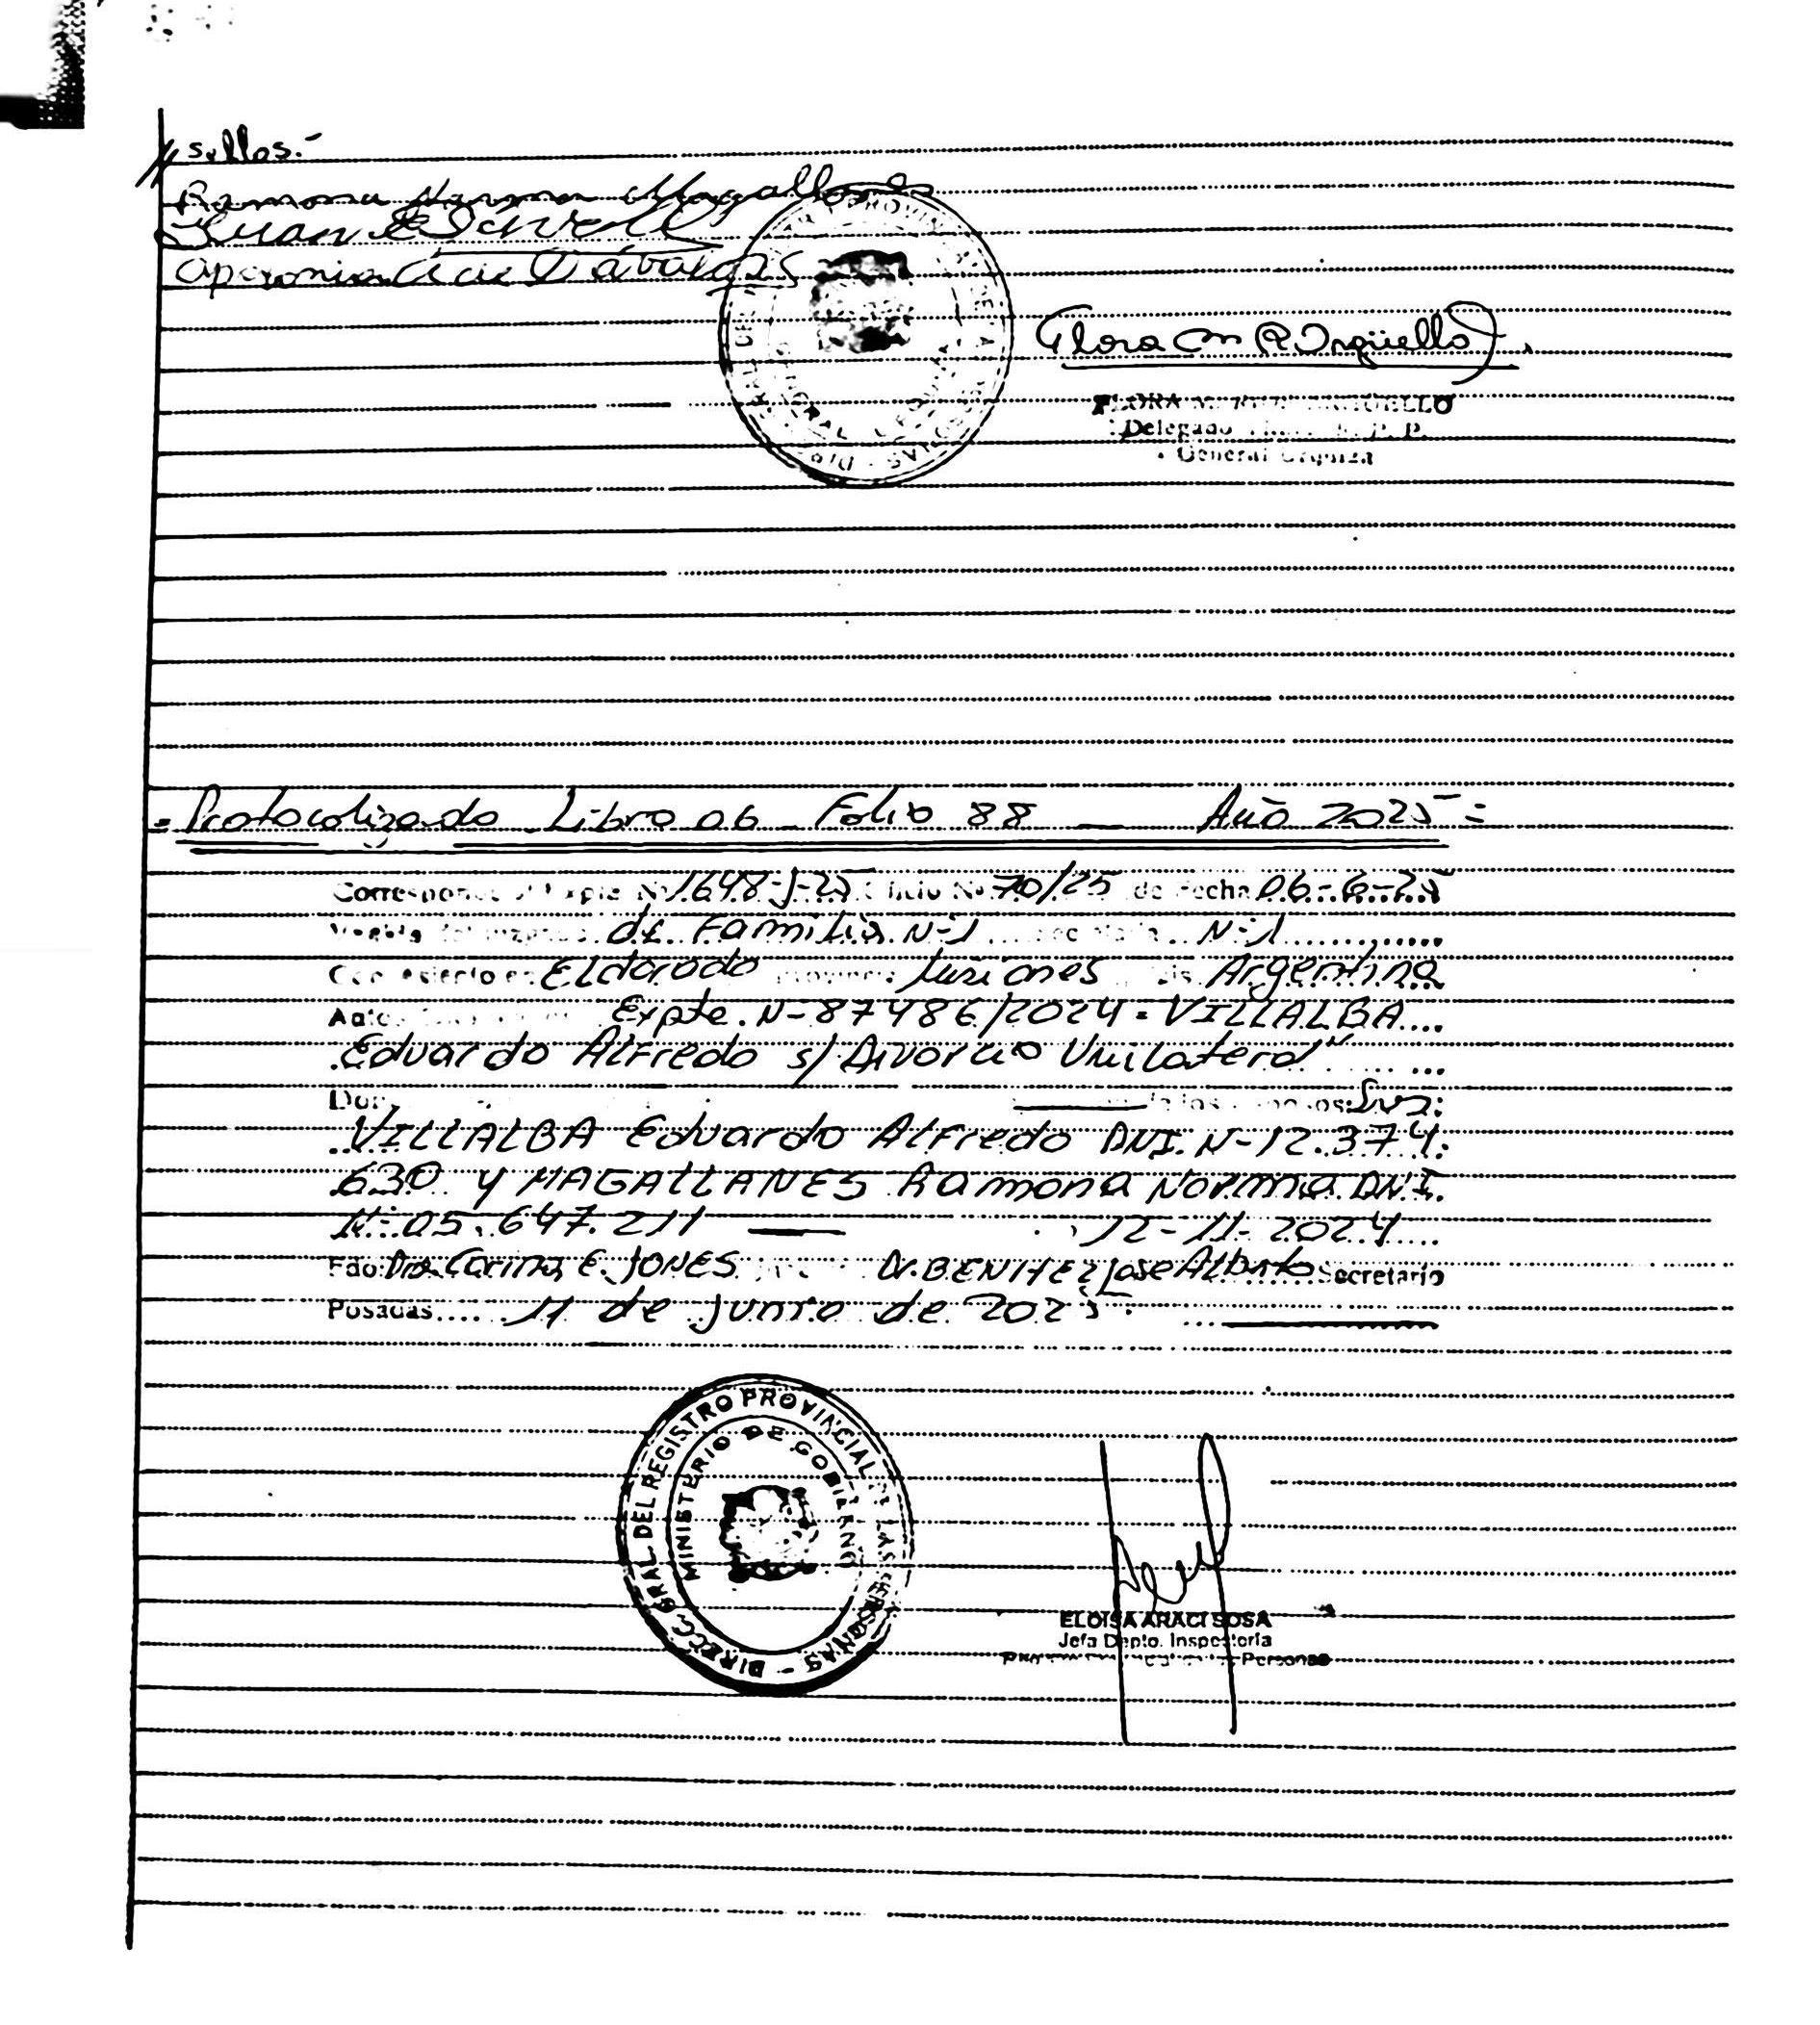 // sellos.-
Ramona Norma Magallanes
Juan
Apolonia Dávalos
Flora M R Argüello
FLORA M. ARGUELLO
Delegado R. P. P.
General Urquiza
= Protocolizado Libro 06 _ Folio 88 — Año 2025 =
Corresponde Expte Nº 1648-J-25 Oficio Nº 70/25 de Fecha 06-6-25
de Familia N-1 Secretaría N-1
Con asiento en Eldorado Provincia Misiones País Argentina
Autos Expte. N-87486/2024 = VILLALBA
Eduardo Alfredo s/ Divorcio Unilateral"
de los Sres:
VILLALBA Eduardo Alfredo DNI. N-12.374.
630 y MAGALLANES Ramona Norma DNI.
N-05.647.211 — 12-11-2024
Fdo: Dra. Carina E. JONES Dr. BENITEZ José Alberto Secretario
Posadas 11 de junio de 2025.
DIRECC. GRAL. DEL REGISTRO PROVINCIAL DE LAS PERSONAS -
MINISTERIO DE GOBIERNO
ELOISA ARACI SOSA
Jefa Depto. Inspectoría
Personas